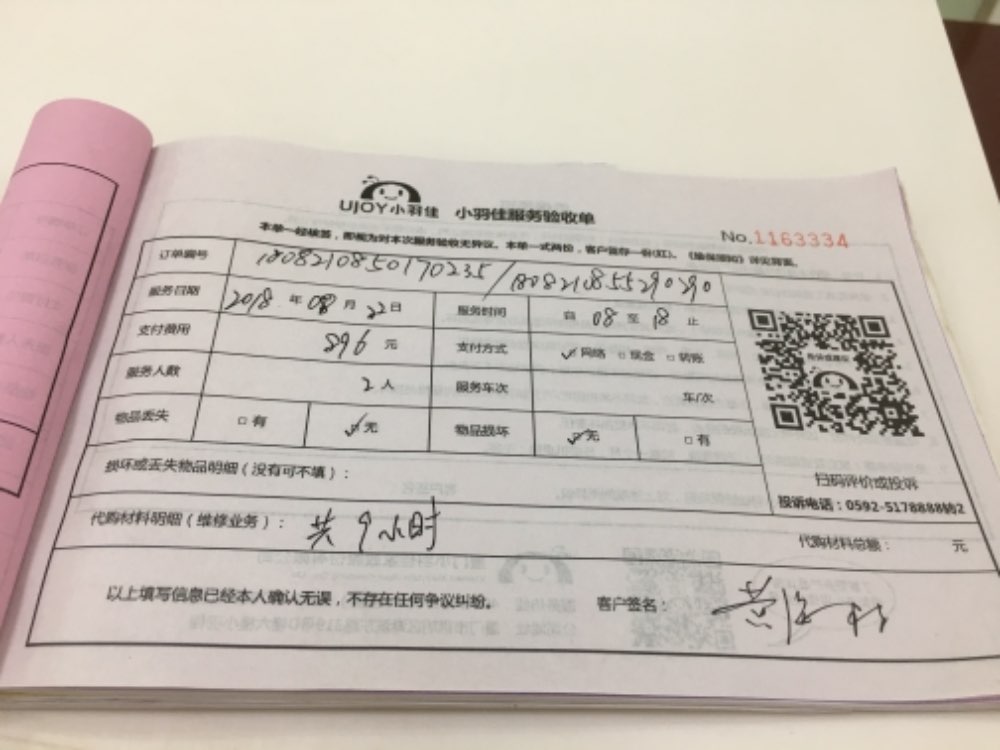 UJOY小羽佳 小羽佳服务验收单
No.1163334
本单一经核签，即视为对本次服务验收无异议。本单一式两份，客户留存一份(红)。《维保须知》详见背面。
订单编号 1808210850170235/1808210855290290
服务日期 2018年08月22日 服务时间 自08至18止
支付费用 896元 支付方式 ✓网络 □现金 □转账
服务人数 2人 服务车次 车/次
物品丢失 □有 ✓无 物品损坏 ✓无 □有
扫码评价或投诉
投诉电话：0592-5178888转2
损坏或丢失物品明细（没有可不填）：
代购材料明细（维修业务）： 共9小时 代购材料总额： 元
以上填写信息已经本人确认无误，不存在任何争议纠纷。 客户签名：